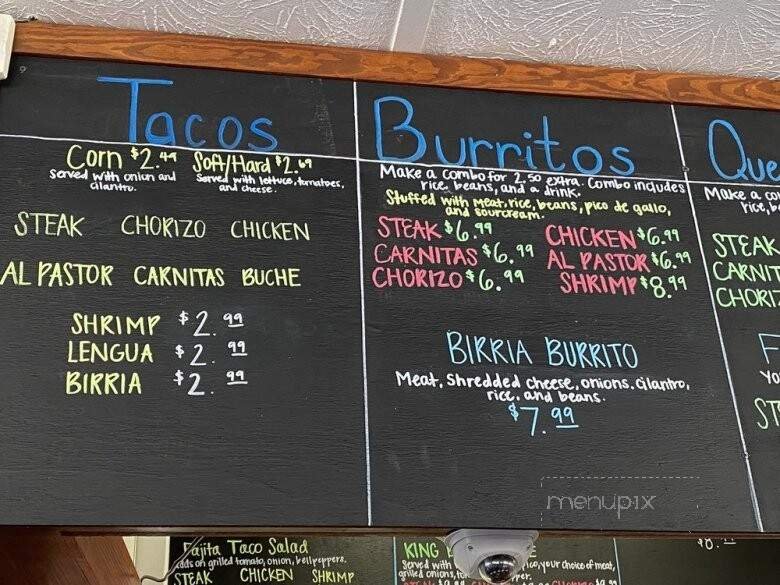 Tacos
Corn $2.49 Soft/Hard $2.69
Served with onion and cilantro.
Served with lettuce, tomatoes, and cheese.
STEAK CHORIZO CHICKEN
AL PASTOR CARNITAS BUCHE
SHRIMP $2.99
LENGUA $2.99
BIRRIA $2.99
Burritos
Make a combo for 2.50 extra. Combo includes
rice, beans, and a drink.
Stuffed with meat, rice, beans, pico de gallo,
and sourcream.
STEAK $6.99 CHICKEN $6.99
CARNITAS $6.99 AL PASTOR $6.99
CHORIZO $6.99 SHRIMP $8.99
BIRRIA BURRITO
Meat, Shredded cheese, onions. cilantro,
rice, and beans.
$7.99
Que
Make a co
rice, b
STEAK
CARNIT
CHORIZ
F
Yo
ST
menupix
Fajita Taco Salad
on grilled tomato, onion, bellpeppers.
STEAK CHICKEN SHRIMP
KING
Served with
your choice of meat,
grilled onions,